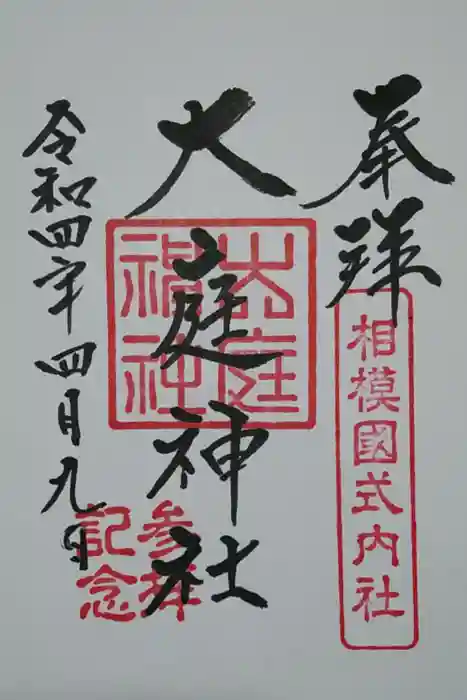 奉拝
相模國式内社
大庭神社
大庭
神社
参拝
記念
令和四年四月九日